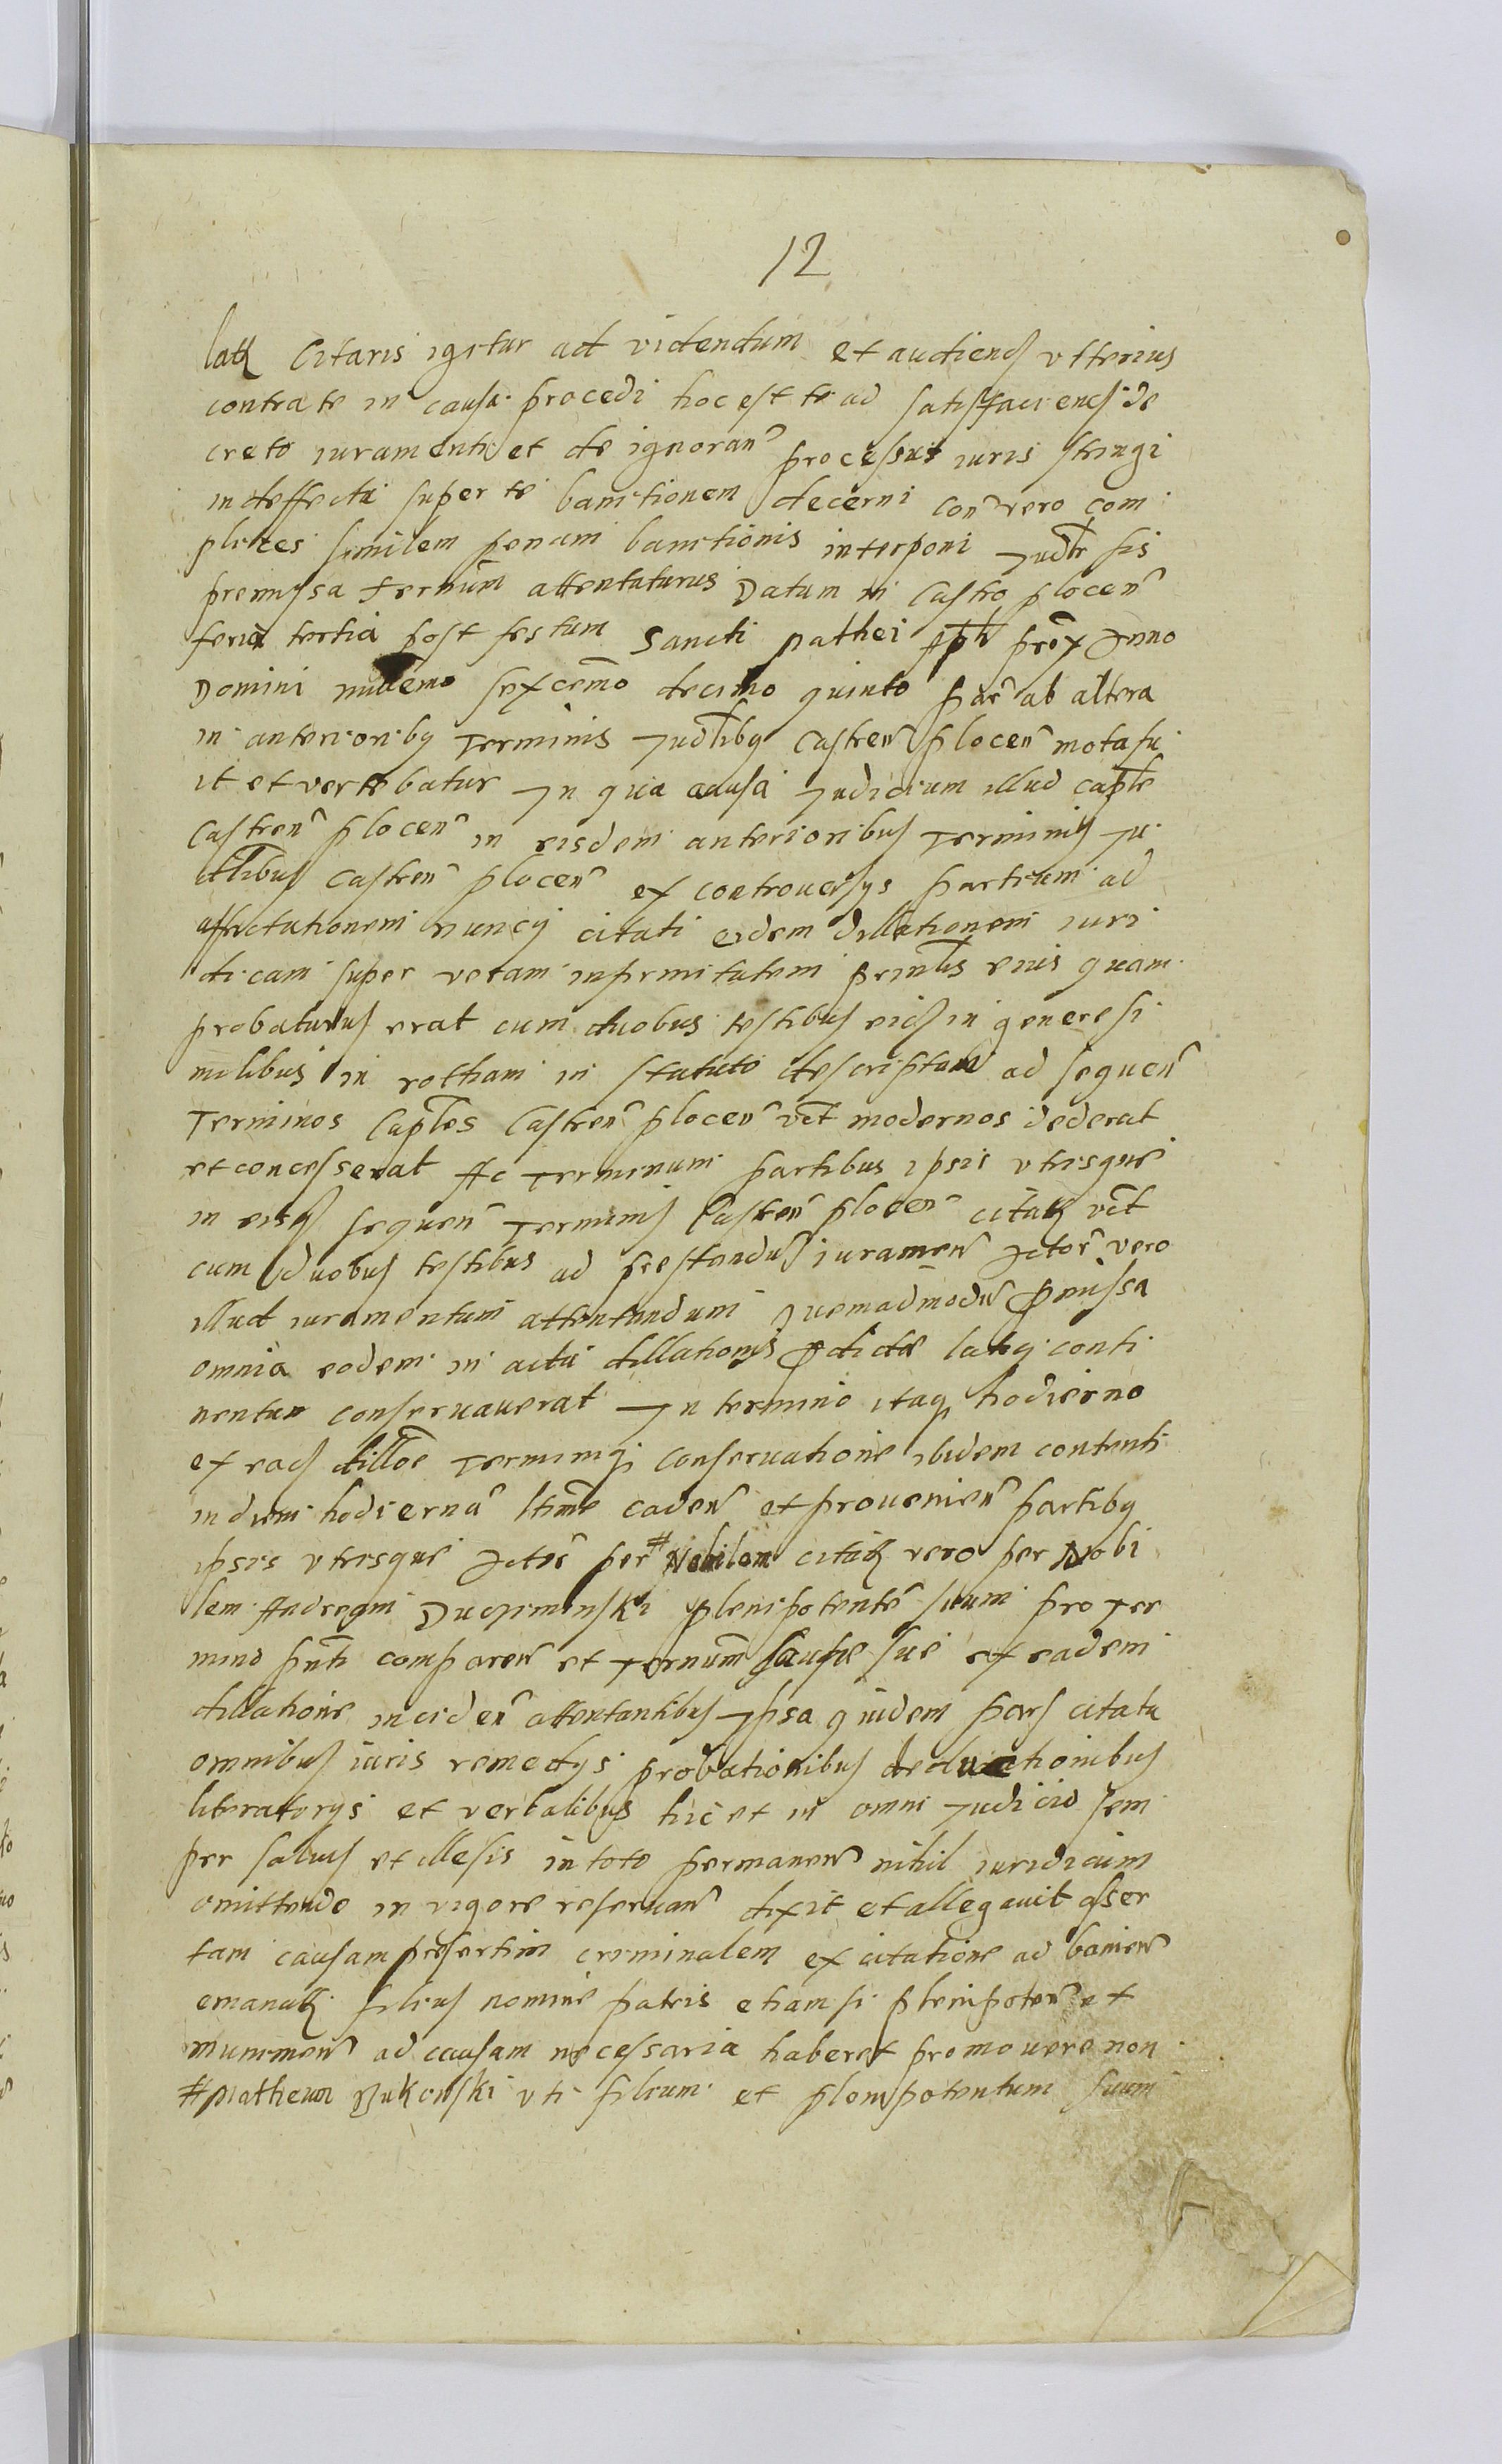 12
latq Citaris igitur ad videndum et audiend ulterius
contra te in causa procedi hoc est te ad satisfaciend de
creto iuramenti et de ignoran processus iuris stringi
in deffectu super te banitionem decerni Con vero com
plices similem penam banitionis interponi Judlr sis
premissa Ternum attentaturus Datum in Castro plocen
feria tertia post festum Sancti Mathei Apli prox Anno
Domini millemo sexcemo decimo quinto par ab altera
in anterioribq Terminis Judlibq Castren plocen mota fu
it et vertebatur In qua causa Judicium illud caple
Castren plocen in eisdem anterioribus Terminis Ju
dlibus Castren plocen ex controversys partium ad
affectationem nuncy citati eidem dillationem iuri
dicam super veram infirmitatem prinlis eius quam
probaturus erat cum duobus testibus eid in genere si
milibus in rotham in statuto descriptam ad sequen
Terminos Caples Castren plocen vct modernos dederat
et concesserat Ac Terminum partibus ipsis utrisque
in eisd sequen Terminis Castren plocen citatq vct
cum duobus testibus ad prestandu iuramen Actor vero
illud iuramentum attentandum Quemadmodu pmissa
omnia eodem in actu dillationis pdictae latiq conti
nentur conservaverat In termino itaq hodierno
ex ead dilloe Terminiq conservatione ibidem contenti
in diem hodierna ltime caden et provenien partibq
ipsis utrisque Actor per # Nobilem citatq vero per Nobi
lem Andream Duczyminski plenipotente suum pro Ter
mino pnti comparen et Ternum causae suae ex eadem
dillatione inciden attentantibus Ipsa quidem pars citata
omnibus iuris remedys probationibus deductionibus
literatorys et verbalibus hic et in omni Judicio sem
per salvis et illesis in toto permanen nihil iuridicum
omittendo in vigore reservan dixit et allegavit asser
tam causam presertim criminalem ex citatione ad banien
emanatq filius nomine patris etiam si plenipoten et
munimen ad causam necessaria haberet promovere non
# Matheum Bukowski uti filium et plenipotentem suum